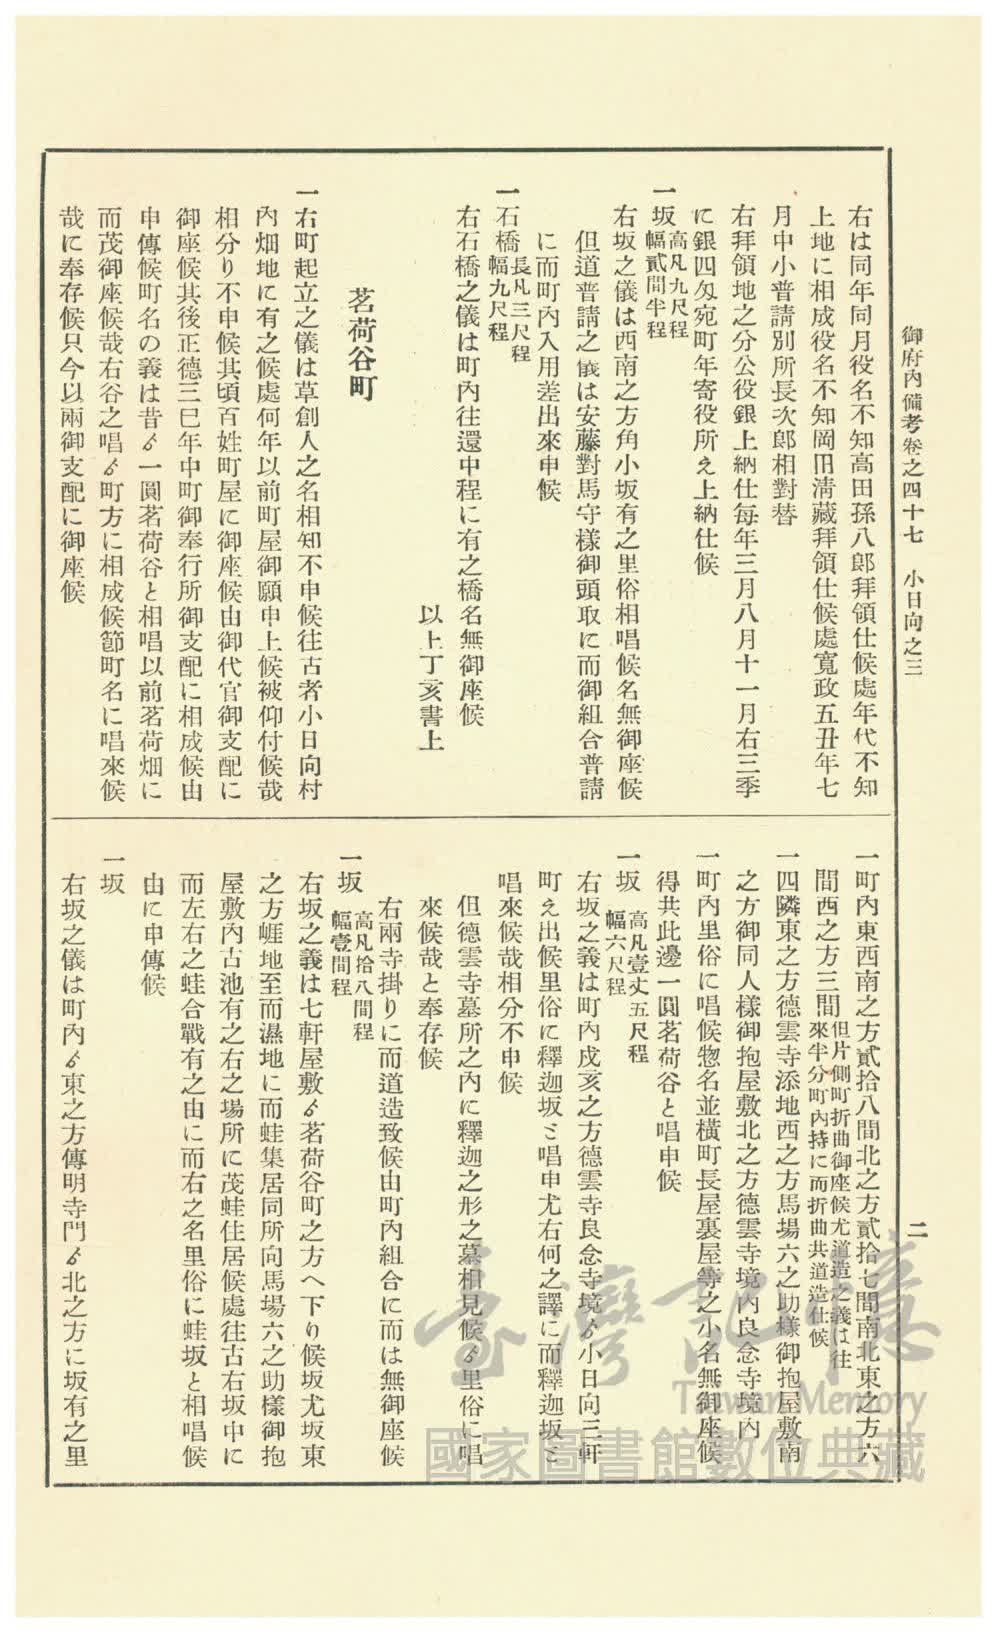 御府內備考卷之四十七　小日向之三
二
右は同年同月役名不知高田孫八郞拜領仕候處年代不知
上地に相成役名不知岡田淸藏拜領仕候處寬政五丑年七
月中小普請別所長次郞相對替
右拜領地之分公役銀上納仕每年三月八月十一月右三季
に銀四匁宛町年寄役所え上納仕候
一坂 高凡九尺程
幅貳間半程
右坂之儀は西南之方角小坂有之里俗相唱候名無御座候
但道普請之儀は安藤對馬守樣御頭取に而御組合普請
に而町內入用差出來申候
一石橋 長凡三尺程
幅九尺程
右石橋之儀は町內往還中程に有之橋名無御座候
以上丁亥書上
茗荷谷町
一右町起立之儀は草創人之名相知不申候往古者小日向村
內畑地に有之候處何年以前町屋御願申上候被仰付候哉
相分り不申候其頃百姓町屋に御座候由御代官御支配に
御座候其後正德三巳年中町御奉行所御支配に相成候由
申傳候町名の義は昔ゟ一圓茗荷谷と相唱以前茗荷畑に
而茂御座候哉右谷之唱ゟ町方に相成候節町名に唱來候
哉に奉存候只今以兩御支配に御座候
一町內東西南之方貳拾八間北之方貳拾七間南北東之方六
間西之方三間 但片側町折曲御座候尤道造之義は往
來半分町內持に而折曲共道造仕候
一四隣東之方德雲寺添地西之方馬場六之助樣御抱屋敷南
之方御同人樣御抱屋敷北之方德雲寺境內良念寺境內
一町內里俗に唱候惣名並橫町長屋裏屋等之小名無御座候
得共此邊一圓茗荷谷と唱申候
一坂 高凡壹丈五尺程
幅六尺程
右坂之義は町內戌亥之方德雲寺良念寺境ゟ小日向三軒
町え出候里俗に釋迦坂と唱申尤右何之譯に而釋迦坂と
唱來候哉相分不申候
但德雲寺墓所之內に釋迦之形之墓相見候ゟ里俗に唱
來候哉と奉存候
右兩寺掛りに而道造致候由町內組合に而は無御座候
一坂 高凡拾八間程
幅壹間程
右坂之義は七軒屋敷ゟ茗荷谷町之方へ下り候坂尤坂東
之方崕地至而濕地に而蛙集居同所向馬場六之助樣御抱
屋敷內古池有之右之場所に茂蛙住居候處往古右坂中に
而左右之蛙合戰有之由に而右之名里俗に蛙坂と相唱候
由に申傳候
一坂
右坂之儀は町內ゟ東之方傳明寺門ゟ北之方に坂有之里
臺灣記憶
Taiwan Memory
國家圖書館數位典藏